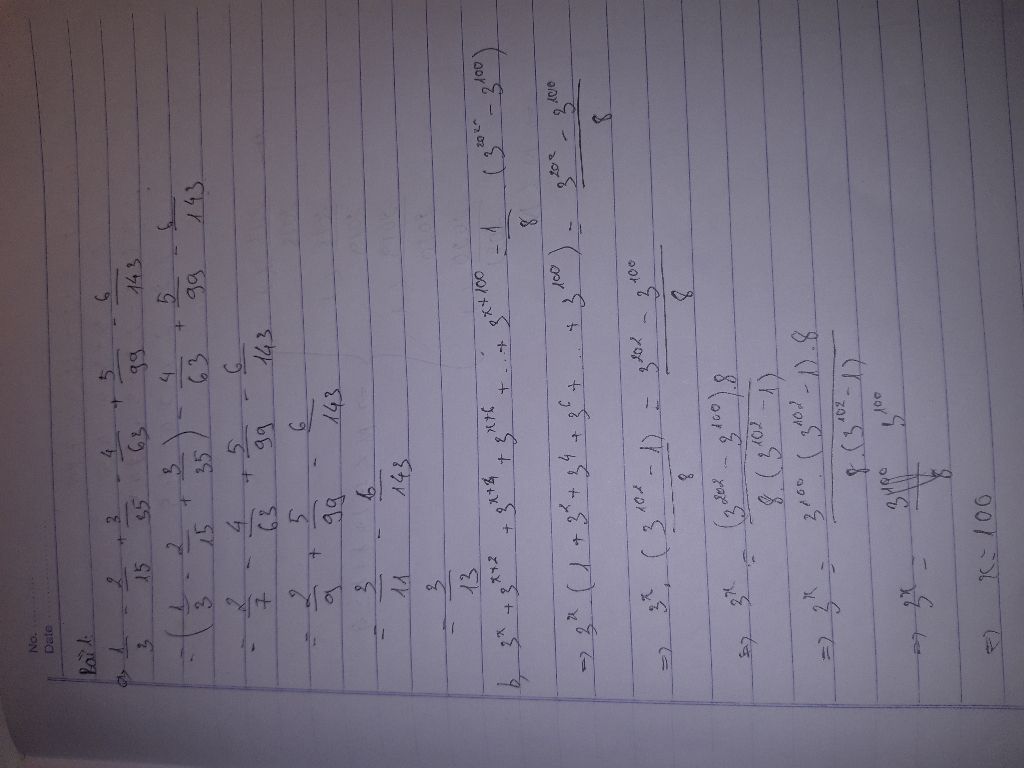 No. ............
Date ............
Bài 1:
a, 1/3 - 2/15 + 3/35 - 4/63 + 5/99 - 6/143
= (1/3 - 2/15 + 3/35) - 4/63 + 5/99 - 6/143
= 2/7 - 4/63 + 5/99 - 6/143
= 2/9 + 5/99 - 6/143
= 3/11 - 6/143
= 3/13
b, 3^x + 3^(x+2) + 3^(x+4) + 3^(x+6) + ... + 3^(x+100) = 1/8 (3^202 - 3^100)
=> 3^x (1 + 3^2 + 3^4 + 3^6 + ... + 3^100) = (3^202 - 3^100)/8
=> 3^x . (3^102 - 1)/8 = (3^202 - 3^100)/8
=> 3^x = (3^202 - 3^100).8 / 8.(3^102 - 1)
=> 3^x = 3^100 . (3^102 - 1).8 / 8.(3^102 - 1)
=> 3^x = 3^100
=> x = 100